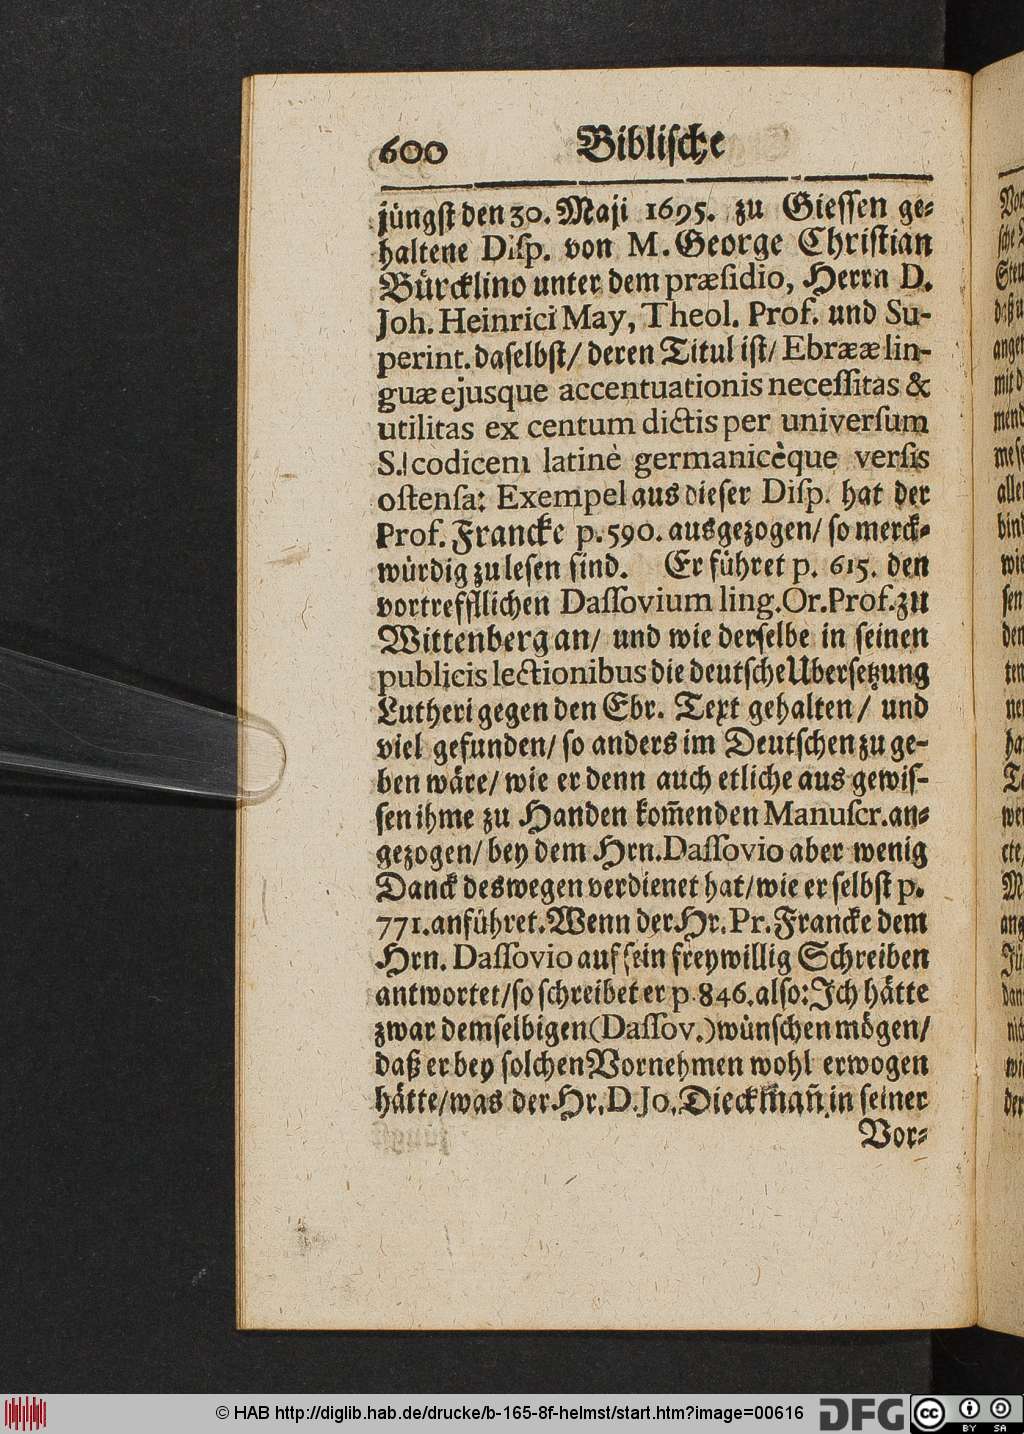 600 Biblische
jüngst den 30. Maji 1695. zu Giessen ge-
haltene Disp. von M. George Christian
Bürcklino unter dem præsidio, Herrn D.
Joh. Heinrici May, Theol. Prof. und Su-
perint. daselbst/ deren Titul ist/ Ebrææ lin-
guæ ejusque accentuationis necessitas &
utilitas ex centum dictis per universum
S. codicem latinè germanicèque versis
ostensa: Exempel aus dieser Disp. hat der
Prof. Francke p. 590. ausgezogen/ so merck-
würdig zu lesen sind. Er führet p. 615. den
vortrefflichen Dassovium ling. Or. Prof. zu
Wittenberg an/ und wie derselbe in seinen
publicis lectionibus die deutsche Ubersetzung
Lutheri gegen den Ebr. Text gehalten/ und
viel gefunden/ so anders im Deutschen zu ge-
ben wäre/ wie er denn auch etliche aus gewis-
sen ihme zu Handen kom̃enden Manuscr. an-
gezogen/ bey dem Hrn. Dassovio aber wenig
Danck deswegen verdienet hat/ wie er selbst p.
771. anführet. Wenn der Hr. Pr. Francke dem
Hrn. Dassovio auf sein freywillig Schreiben
antwortet/ so schreibet er p. 846. also: Ich hätte
zwar demselbigen (Dassov.) wünschen mögen/
daß er bey solchen Vornehmen wohl erwogen
hätte/ was der Hr. D. Jo. Dieckmañ in seiner
Vor-
© HAB http://diglib.hab.de/drucke/b-165-8f-helmst/start.htm?image=00616
DFG
cc BY SA